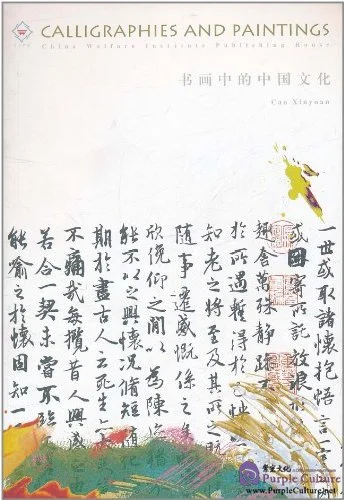 CALLIGRAPHIES AND PAINTINGS
China Welfare Institute Publishing House
书画中的中国文化
Cao Xinyuan
一世或取諸懷抱悟言一
或因寄所託放浪
趣舍萬殊静躁
於所遇蹔得於己快
知老之將至及其所
隨事遷感慨係之
欣俛仰之閒以為陳
能不以之興懷況脩短
期於盡古人云死生
不痛哉每攬昔人興感
若合一契未嘗不臨
能喻之於懷固知一
紫宸文化
Purple Culture
www.PurpleCulture.net